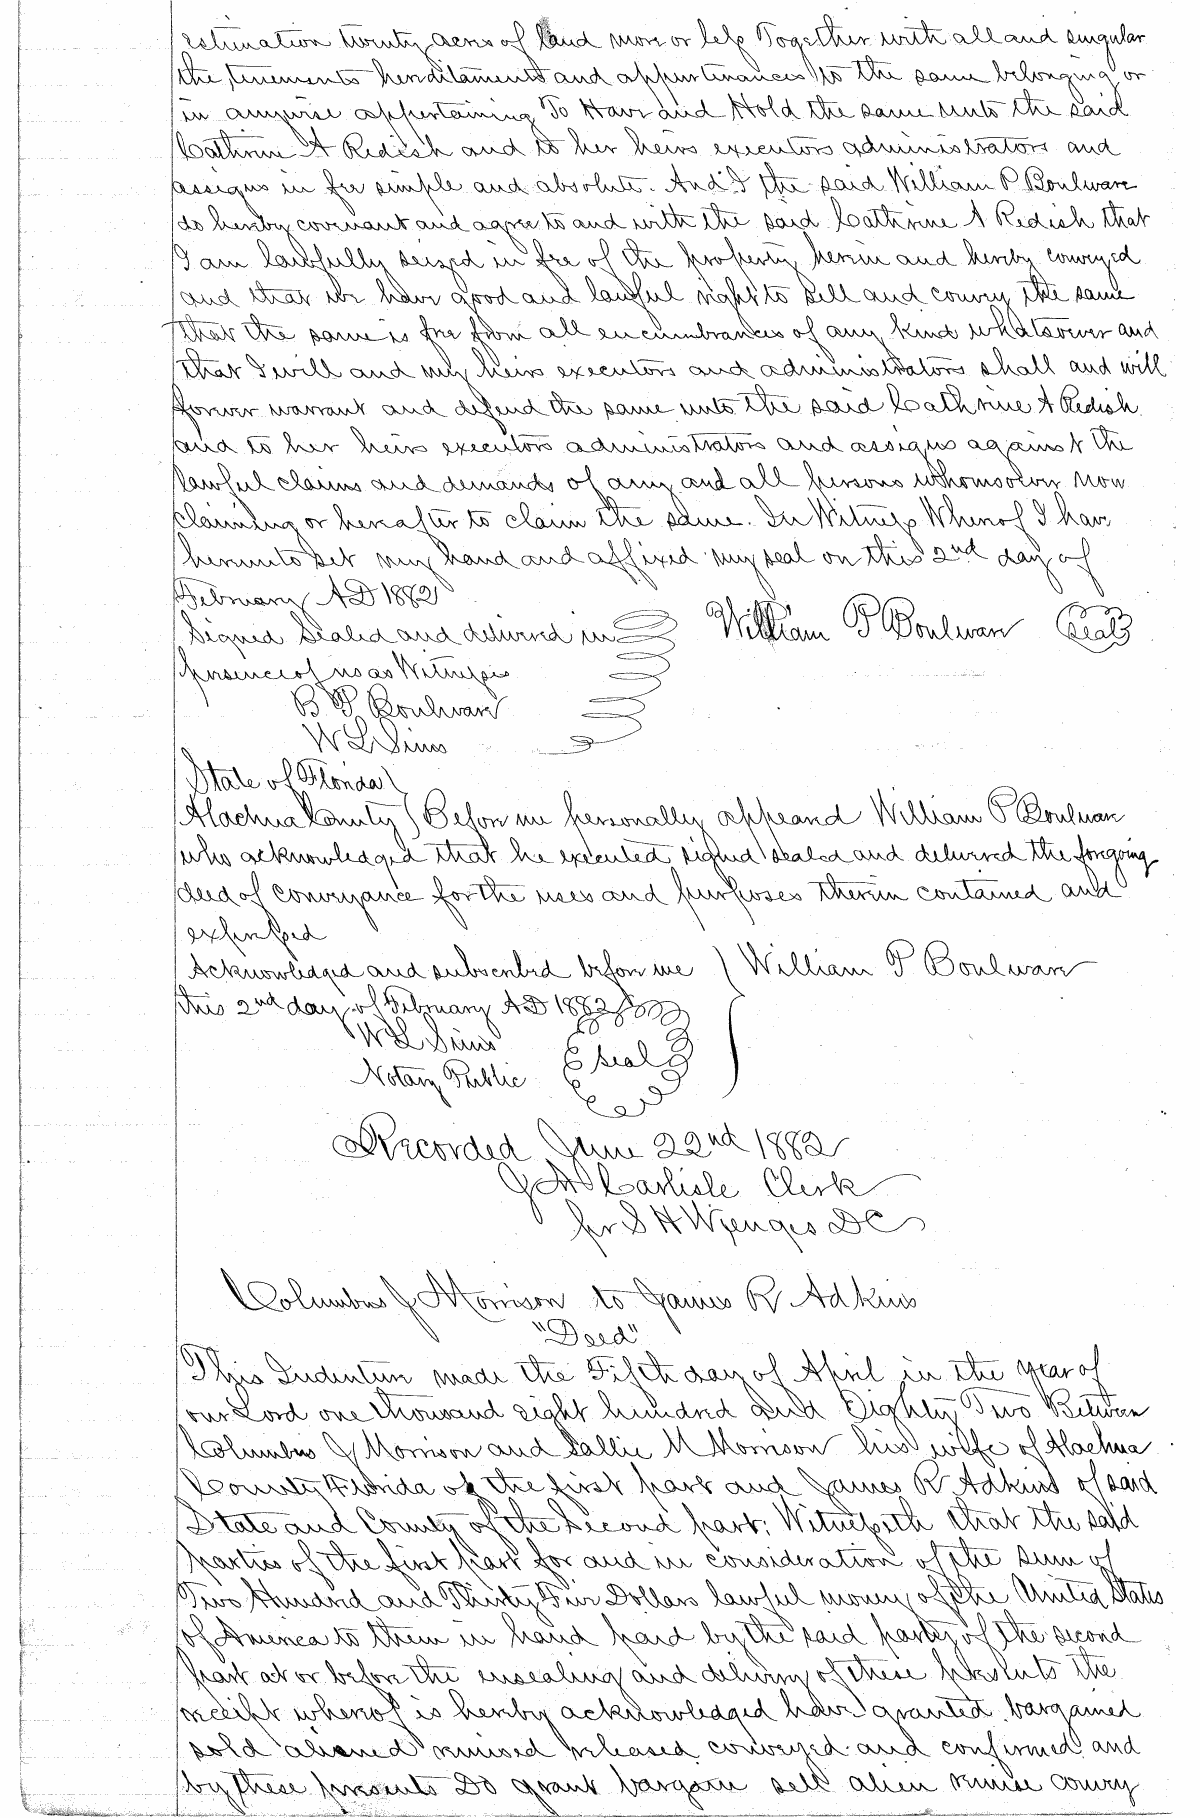 estimation twenty acres of land more or less Together with all and singular
the tenements hereditaments and appurtenances to the same belonging or
in anywise appertaining To Have and Hold the same unto the said
Cathrine A Redish and to her heirs executors administrators and
assigns in fee simple and absolute. And I the said William P Boulware
do hereby covenant and agree to and with the said Cathrine A Redish that
I am lawfully seized in fee of the property herein and hereby conveyed
and that we have good and lawful right to sell and convey the same
that the same is free from all encumbrances of any kind whatsoever and
that I will and my heirs executors and administrators shall and will
forever warrant and defend the same unto the said Cathrine A Redish
and to her heirs executors administrators and assigns against the
lawful claims and demands of any and all persons whomsoever now
claiming or hereafter to claim the same. In Witness Whereof I have
hereunto set my hand and affixed my seal on this 2nd day of
February AD 1882
Signed Sealed and delivered in William P Boulware Seal
presence of us as Witnesses
B P Boulware
W L Sims
State of Florida
Alachua County Before me personally appeared William P Boulware
who acknowledged that he executed signed sealed and delivered the foregoing
deed of conveyance for the uses and purposes therein contained and
expressed
Acknowledged and subscribed before me William P Boulware
this 2nd day of February AD 1882
W L Sims seal
Notary Public
Recorded June 22nd 1882
J A Carlisle Clerk
per S H Wienges DC
Columbus J Morrison to James R Adkins
"Deed"
This Indenture made the Fifth day of April in the year of
our Lord one thousand eight hundred and Eighty Two Between
Columbus J Morrison and Sallie M Morrison his wife of Alachua
County Florida of the first part and James R Adkins of said
State and County of the Second part: Witnesseth that the said
parties of the first part for and in consideration of the sum of
Two Hundred and Thirty Five Dollars lawful money of the United States
of America to them in hand paid by the said party of the second
part at or before the ensealing and delivery of these presents the
receipt whereof is hereby acknowledged have granted bargained
sold aliened remised released conveyed and confirmed and
by these presents Do grant bargain sell alien remise convey